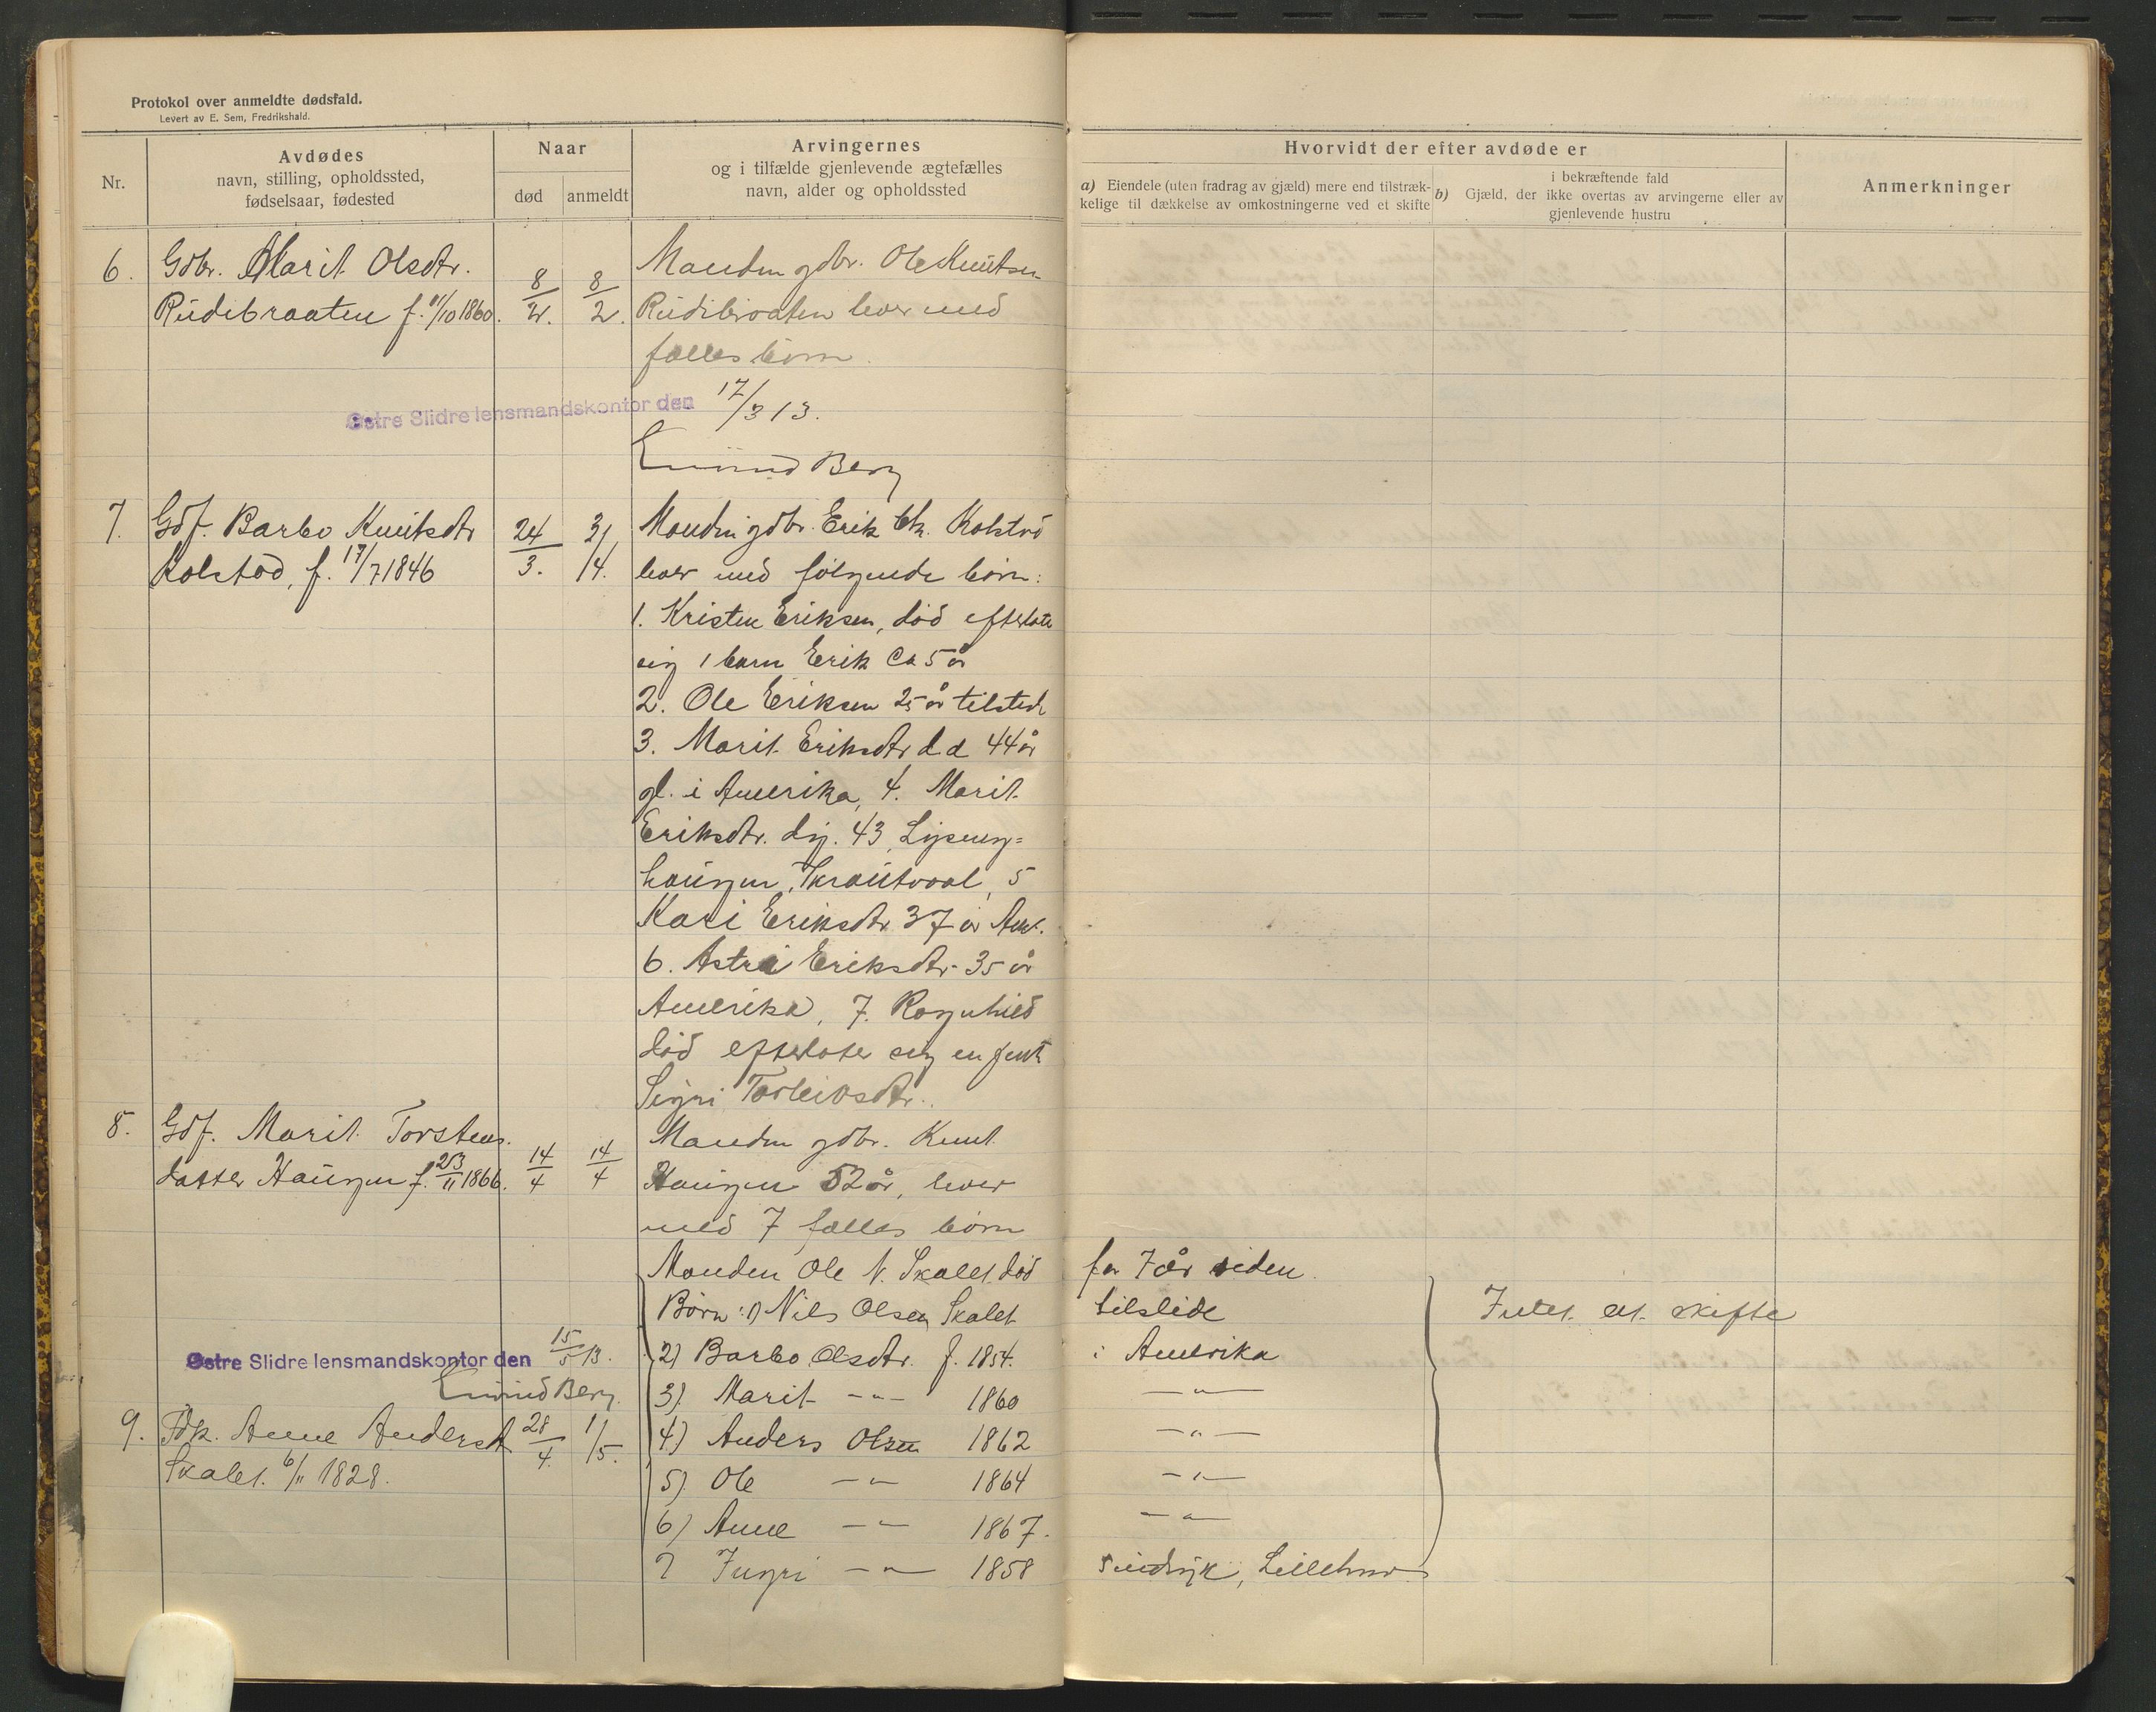 Protokol over anmeldte dødsfald.
Levert av E. Sem, Fredrikshald.
Nr.
Avdødes
navn, stilling, opholdssted,
fødselsaar, fødested
Naar
død
anmeldt
Arvingernes
og i tilfælde gjenlevende ægtefælles
navn, alder og opholdssted
Hvorvidt der efter avdøde er
a) Eiendele (uten fradrag av gjæld) mere end tilstræk-
kelige til dækkelse av omkostningerne ved et skifte
i bekræftende fald
b) Gjæld, der ikke overtas av arvingerne eller av
gjenlevende hustru
Anmerkninger
6. Gdbr. Marit Olsdtr.
Rudibraaten f. 11/10 1860.
8/2. 8/2.
Manden gdbr. Ole Knutsen
Rudibraaten lever med
fælles børn.
Østre Slidre lensmandskontor den 17/3 13.
Berg
7. Gdf. Barbo Knutsdtr
Kolstad, f. 17/7 1846
24/3. 3/4.
Manden gdbr. Erik Kolstad
lever med følgende børn:
1. Kristen Eriksen, død efterlate
sig 1 barn Erik ca 5 år
2. Ole Eriksen 25 år tilstede
3. Marit Eriksdtr d. æ 44 år
gl. i Amerika, 4. Marit
Eriksdtr. d.y. 43,
haugen, Skrautvaal, 5
Kari Eriksdtr. 37 år Am.
6. Astri Eriksdtr. 35 år
Amerika, 7. Ragnhild
død efterlater sig en jente
Sigri Torleivsdtr.
8. Gdf. Marit Torstens
datter Haugen f. 23/11 1866.
14/4 14/4
Manden gdbr. Knut
Haugen 52 år, lever
med 7 fælles børn
Østre Slidre lensmandskontor den 15/5 13.
Berg.
9. Fdk. Anne Andersdt
Skalet. 6/11 1828.
28/4. 1/5.
Manden Ole N. Skalet død for 7 år siden.
Børn: 1) Nils Olsen Skalet tilstede
2) Barbo Olsdtr. f. 1854. i Amerika
3) Marit -"- 1860 -"-
4) Anders Olsen 1862 -"-
5) Ole -"- 1864 -"-
6) Anne -"- 1867. -"-
7 Ingri -"- 1858 Lillehammer
Intet at skifte